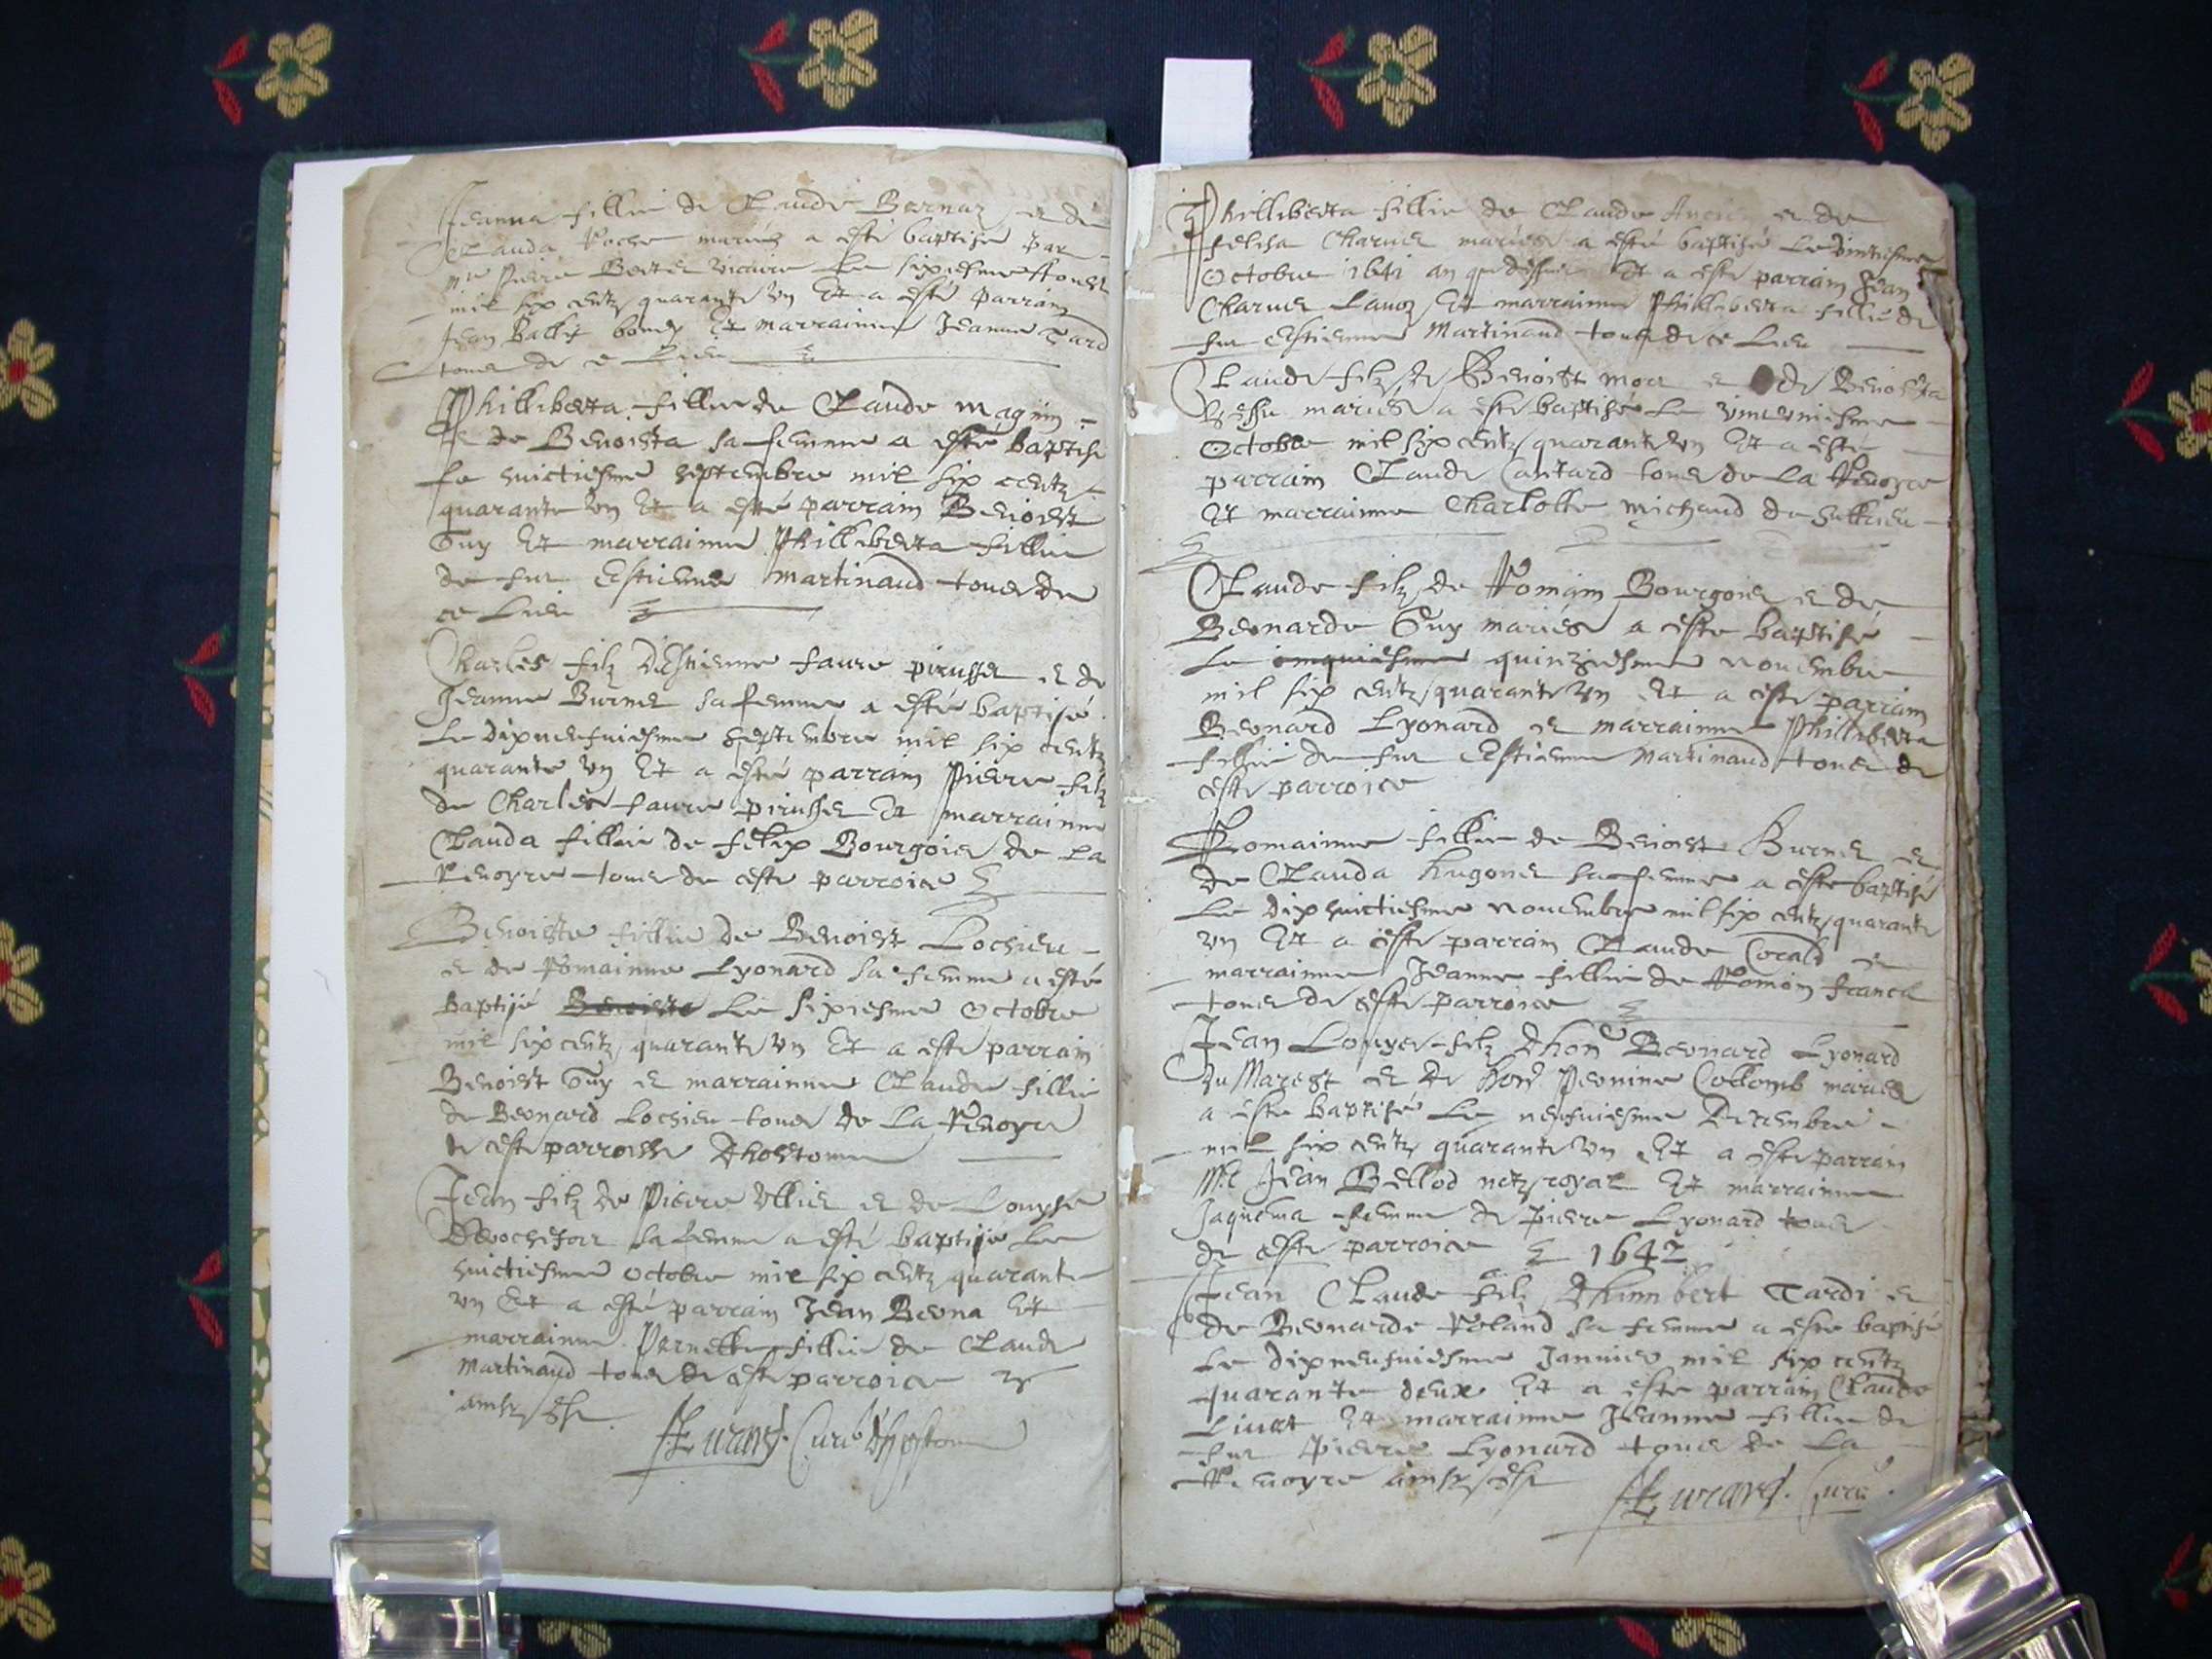 Jeanna fillie de Claude Bernaz et de
Clauda Roche mariés a esté baptisé par
mre Pierre Bertet vicaire le sixiesme
mil six centz quarante vn Et a esté parrain
Jean Bally Et marrainne Jeanne Tard
tous de ce Lieu
Philliberta fillie de Claude Magnin
et de Benoista sa femme a esté baptisé
le huictiesme septembre mil six centz
quarante vn Et a esté parrain Benoist
Guy Et marrainne Philliberta fillie
de fut Estienne Martinaud tous de
ce Lieu
Charles filz d'Estienne Faure pirusset et de
Jeanne Burnet sa femme a esté baptisé
Le dixneufuiesme septembre mil six centz
quarante vn Et a esté parrain Pierre filz
de Charles Faure pirusset Et marrainne
Clauda fillie de Felix Bourgois de La
Revoyre tous de ceste parroice
Benoiste fillie de Benoist Lochieu
et de Romainne Lyonard sa femme a esté
baptisé Benoiste Le sixiesme Octobre
mil six centz quarante vn Et a esté parrain
Benoist Guy et marrainne Claude fillie
de Bernard Lochieu tous de La Revoyre
de ceste parroisse dhostonne
Jean filz de Pierre Ullier et de Louyse
Derochefort sa femme a esté baptisé Le
huictiesme octobre mil six centz quarante
vn Et a esté parrain Jean Berna Et
marrainne Pernette fillie de Claude
Martinaud tous de ceste parroice
ainsy est
Curé d'hostonne
Philliberta fillie de Claude et de
Felisa Charuet mariés a esté baptisé Le vintiesme
Octobre 1641 an que dessus Et a esté parrain Jean
Charuet Et marrainne Philliberta fillie de
fut Estienne Martinaud tous de ce Lieu
Claude filz de Benoist et de Benoista
mariés a esté baptisé Le vint vniesme
Octobre mil six centz quarante vn Et a esté
parrain Claude Cantard tous de La Revoyre
Et marrainne Charlotte Michaud de Sutrieu
Claude filz de Romain Bourgois et de
Bernarde Guy mariés a esté baptisé
Le cinquiesme quinziesme nouembre
mil six centz quarante vn Et a esté parrain
Bernard Lyonard et marrainne Philliberta
fillie de fut Estienne Martinaud tous de
ceste parroice
Romainne fillie de Benoist Burnet et
de Clauda Hugonet sa femme a esté baptisé
Le dixhuictiesme nouembre mil six centz quarante
vn Et a esté parrain Claude et
marrainne Jeanne fillie de Romain
tous de ceste parroice
Jean Louyes filz d'hon Bernard Lyonard
du Marest et de hon Pernine Collomb mariés
a esté baptisé Le neufuiesme Decembre
mil six centz quarante vn Et a esté parrain
Me Jean Bellod royal Et marrainne
Jaquema femme de Pierre Lyonard tous
de ceste parroice 1642
Jean Claude filz d'humbert Tardi et
de Bernarde Roland sa femme a esté baptisé
Le dixneufuiesme Januier mil six centz
quarante deux Et a esté parrain Claude
Liuet Et marrainne Jeanne fillie de
fut Pierre Lyonard tous de La
Revoyre ainsy est
Curé